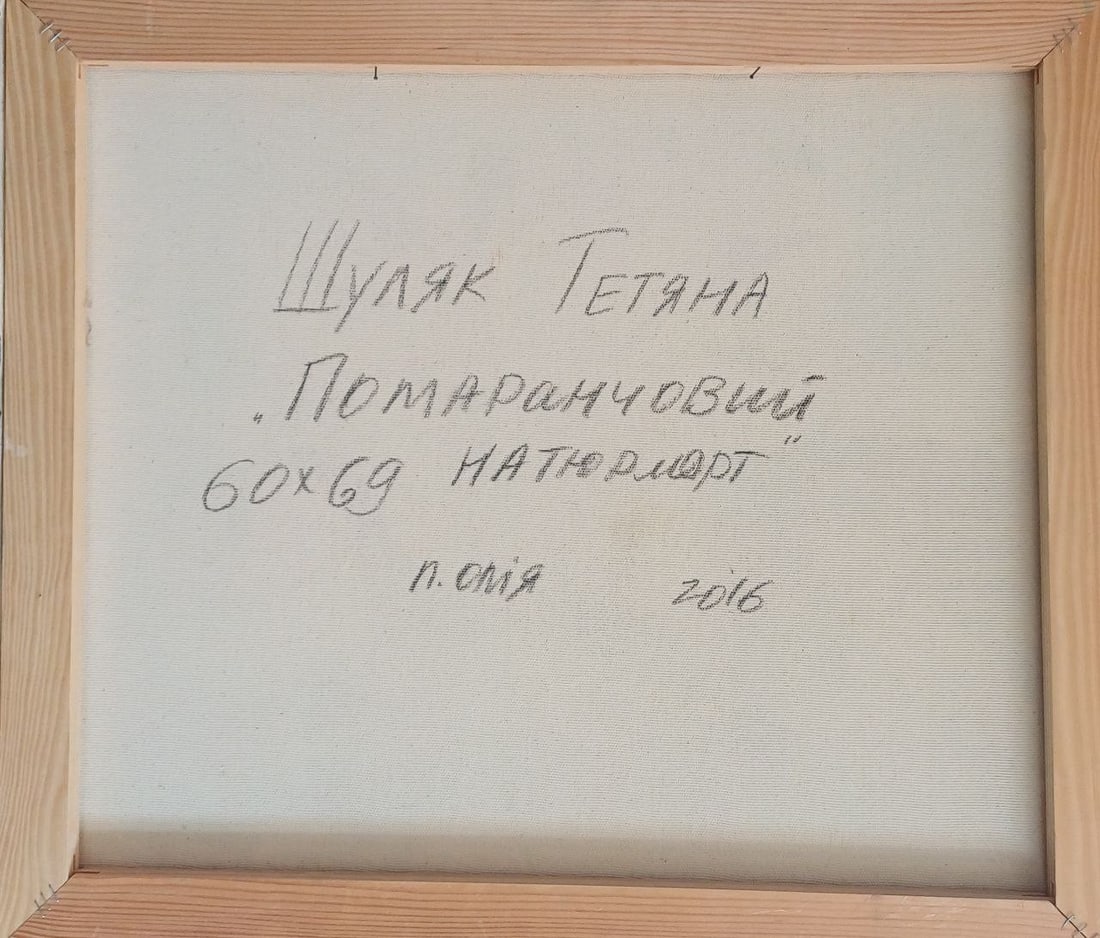 Шуляк Тетяна
„Помаранчовий
60х69 натюрморт"
п. олія 2016